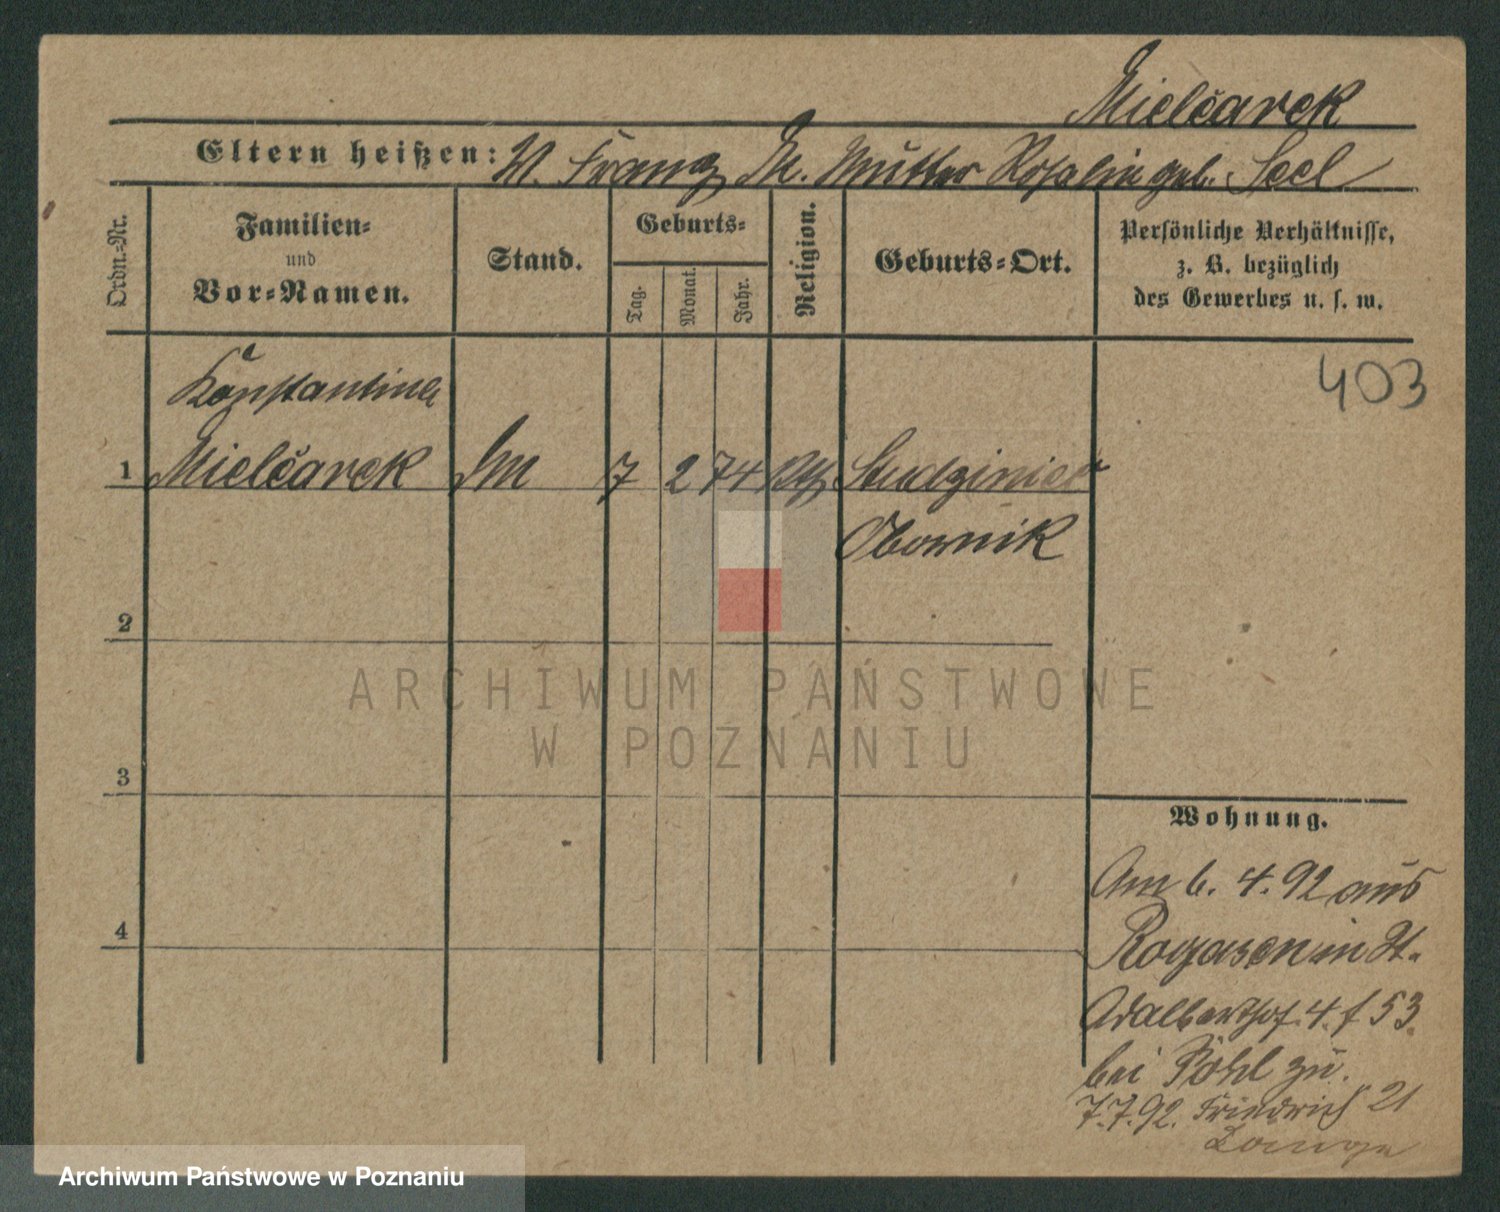 Mielčarek
Eltern heißen: V. Franz M. Mutter Rosalie geb. Seel
Ordn.-Nr.
Familien- und Vor-Namen.
Stand.
Geburts-
Tag.
Monat.
Jahr.
Religion.
Geburts-Ort.
Persönliche Verhältnisse,
z. B. bezüglich
des Gewerbes u. s. w.
403
Konstantina
1 Mielčarek 7 2 74 Studziniec
Obornik
2
3
Wohnung.
Am 6. 4. 92 aus
4
Rogasen in St.
Adalberthof. 4. f 53.
bei Pöhl zu.
7.7.92. Friedrich 21
ARCHIWUM PAŃSTWOWE
W POZNANIU
Archiwum Państwowe w Poznaniu